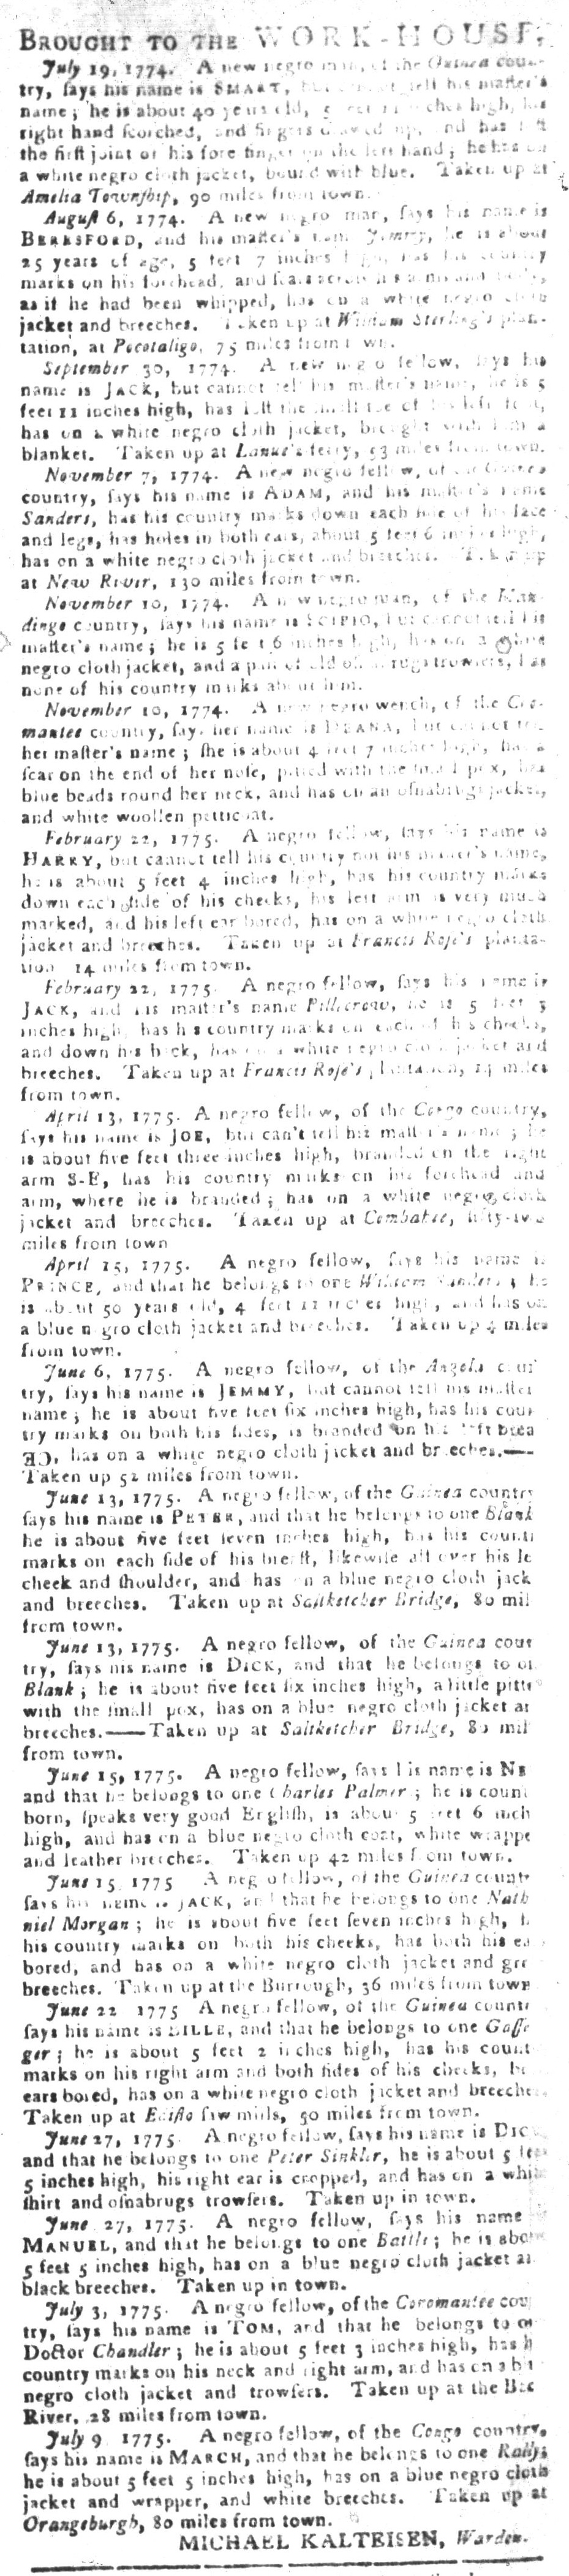 BROUGHT TO THE WORK-HOUSE,
July 19, 1774. A new negro man, of the Guinea coun-
try, ſays his name is SMART, but cannot tell his maſter's
name; he is about 40 years old, 5 feet 11 inches high, his
right hand ſcorched, and fingers drawed up, and has loſt
the firſt joint of his fore finger on the left hand; he has on
a white negro cloth jacket, bound with blue. Taken up at
Amelia Townſhip, 90 miles from town.
Auguſt 6, 1774. A new negro man, ſays his name is
BERESFORD, and his maſter's name Jemmy, he is about
25 years of age, 5 feet 7 inches high, has his country
marks on his forehead, and ſcars acroſs his arms and body,
as if he had been whipped, has on a white negro cloth
jacket and breeches. Taken up at William Sterling's plan-
tation, at Pocotaligo, 75 miles from town.
September 30, 1774. A new negro fellow, ſays his
name is JACK, but cannot tell his maſter's name, he is 5
feet 11 inches high, has loſt the ſmall toe of his left foot,
has on a white negro cloth jacket, brought with him a
blanket. Taken up at Lanue's ferry, 53 miles from town.
November 7, 1774. A new negro fellow, of the Guinea
country, ſays his name is ADAM, and his maſter's name
Sanders, has his country marks down each ſide of his face
and legs, has holes in both ears, about 5 feet 6 inches high,
has on a white negro cloth jacket and breeches. Taken up
at New River, 130 miles from town.
November 10, 1774. A new negro man, of the Man-
dingo country, ſays his name is SCIPIO, but cannot tell his
maſter's name; he is 5 feet 6 inches high, has on a white
negro cloth jacket, and a pair of old oſnabrugs trowſers, has
none of his country marks about him.
November 10, 1774. A new negro wench, of the Coro-
mantee country, ſays her name is DEANA, but cannot tell
her maſter's name; ſhe is about 4 feet 7 inches high, has a
ſcar on the end of her noſe, pitted with the ſmall pox, has
blue beads round her neck, and has on an oſnabrugs jacket,
and white woollen petticoat.
February 22, 1775. A negro fellow, ſays his name is
HARRY, but cannot tell his country nor his maſter's name,
he is about 5 feet 4 inches high, has his country marks
down each ſide of his cheeks, his left arm is very much
marked, and his left ear bored, has on a white negro cloth
jacket and breeches. Taken up at Francis Roſe's planta-
tion 14 miles from town.
February 22, 1775. A negro fellow, ſays his name is
JACK, and his maſter's name Pillicrow, he is 5 feet 3
inches high, has his country marks on each of his cheeks,
and down his back, has on a white negro cloth jacket and
breeches. Taken up at Francis Roſe's plantation, 14 miles
from town.
April 13, 1775. A negro fellow, of the Congo country,
ſays his name is JOE, but can't tell his maſter's name; he
is about five feet three inches high, branded on the right
arm S-E, has his country marks on his forehead and
arm, where he is branded; has on a white negro cloth
jacket and breeches. Taken up at Combahee, fifty-two
miles from town
April 15, 1775. A negro fellow, ſays his name is
PRINCE, and that he belongs to one William Sanders; he
is about 50 years old, 4 feet 11 inches high, and has on
a blue negro cloth jacket and breeches. Taken up 4 miles
from town.
June 6, 1775. A negro fellow, of the Angola coun
try, ſays his name is JEMMY, but cannot tell his maſter
name; he is about five feet ſix inches high, has his coun
try marks on both his ſides, is branded on his left brea
has on a white negro cloth jacket and breeches.—
Taken up 52 miles from town.
June 13, 1775. A negro fellow, of the Guinea country
ſays his name is PETER, and that he belongs to one Blank
he is about five feet ſeven inches high, has his count
marks on each ſide of his breaſt, likewiſe all over his le
cheek and ſhoulder, and has on a blue negro cloth jack
and breeches. Taken up at Saltketcher Bridge, 80 mil
from town.
June 13, 1775. A negro fellow, of the Guinea coun
try, ſays his name is DICK, and that he belongs to on
Blank; he is about five feet ſix inches high, a little pitte
with the ſmall pox, has on a blue negro cloth jacket an
breeches.——Taken up at Saltketcher Bridge, 80 mil
from town.
June 15, 1775. A negro fellow, ſays his name is NE
and that he belongs to one Charles Palmer; he is count
born, ſpeaks very good Engliſh, is about 5 feet 6 inch
high, and has on a blue negro cloth coat, white wrappe
and leather breeches. Taken up 42 miles from town.
June 15 1775 A negro fellow, of the Guinea count
ſays his name is JACK, and that he belongs to one Nath
niel Morgan; he is about five feet ſeven inches high, h
his country marks on both his cheeks, has both his ea
bored, and has on a white negro cloth jacket and gre
breeches. Taken up at the Burrough, 36 miles from town
June 22 1775 A negro fellow, of the Guinea count
ſays his name is BILLE, and that he belongs to one Gaſſe
ger; he is about 5 feet 2 inches high, has his count
marks on his right arm and both ſides of his cheeks, b
ears bored, has on a white negro cloth jacket and breeches,
Taken up at Ediſto ſaw mills, 50 miles from town.
June 27, 1775. A negro fellow, ſays his name is DIC
and that he belongs to one Peter Sinkler, he is about 5 fee
5 inches high, his right ear is cropped, and has on a whi
ſhirt and oſnabrugs trowſers. Taken up in town.
June 27, 1775. A negro fellow, ſays his name
MANUEL, and that he belongs to one Battle; he is abo
5 feet 5 inches high, has on a blue negro cloth jacket a
black breeches. Taken up in town.
July 3, 1775. A negro fellow, of the Coromantee cou
try, ſays his name is TOM, and that he belongs to o
Doctor Chandler; he is about 5 feet 3 inches high, has h
country marks on his neck and right arm, and has on a
negro cloth jacket and trowſers. Taken up at the
River, 28 miles from town.
July 9 1775. A negro fellow, of the Congo country,
ſays his name is MARCH, and that he belongs to one
he is about 5 feet 5 inches high, has on a blue negro cloth
jacket and wrapper, and white breeches. Taken up at
Orangeburgh, 80 miles from town.
MICHAEL KALTEISEN, Warden.